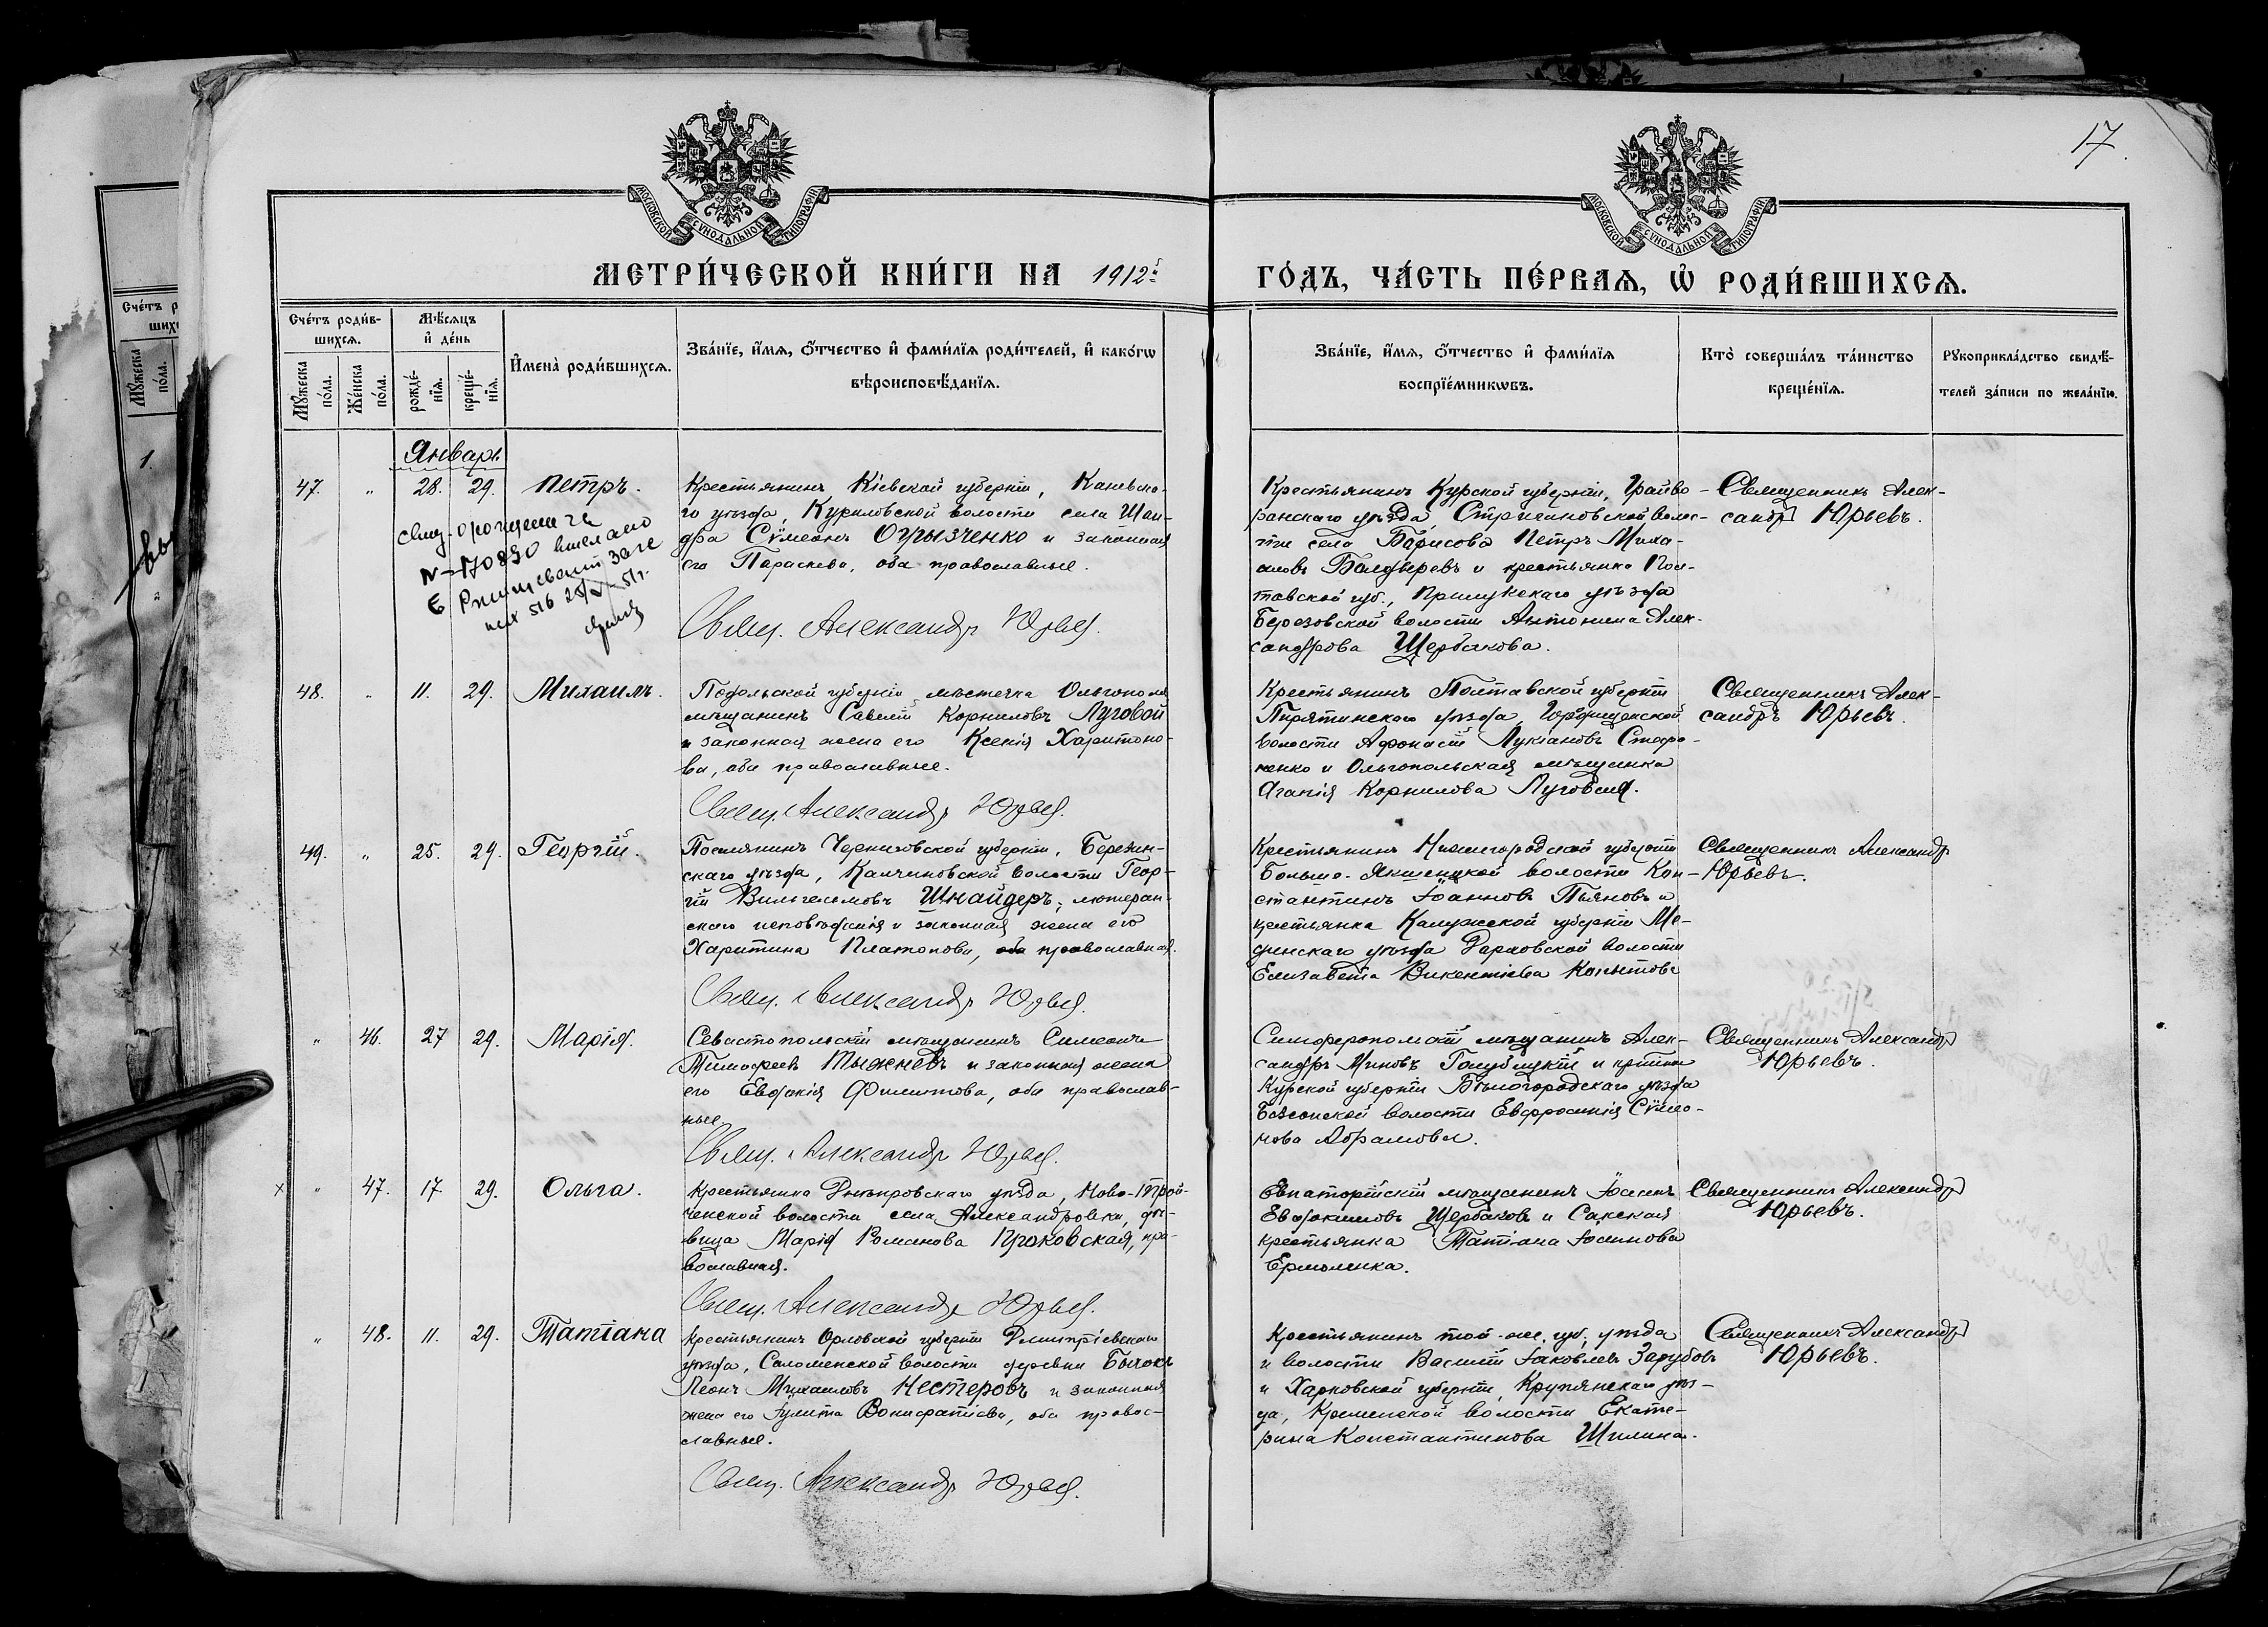 17.
МОСКОВСКОЙ СѴНОДАЛЬНОЙ ТИПОГРАФІИ
МОСКОВСКОЙ СѴНОДАЛЬНОЙ ТИПОГРАФІИ
МЕТРИ́ЧЕСКОЙ КНИ́ГИ НА 1912й
ГО́ДЪ, ЧА́СТЬ ПЕ́РВАѦ, Ѡ РОДИ́ВШИХСѦ.
Сче́тъ роди́в-
шихсѧ.
Мꙋ́жеска
по́ла.
Же́нска
по́ла.
Мѣ́сѧцъ
и҆ де́нь
рожде́-
нїѧ.
креще́-
нїѧ.
И҆мена̀ роди́вшихсѧ.
Зва́нїе, и҆́мѧ, ѻ҆́тчество и҆ фами́лїѧ роди́телей, и҆ како́гѡ
вѣроисповѣ́данїѧ.
Зва́нїе, и҆́мѧ, ѻ҆́тчество и҆ фами́лїѧ
воспрїе́мникѡвъ.
Кто̀ соверша́лъ та́инство
креще́нїѧ.
Рꙋкоприкла́дство свидѣ́-
телей за́писи по жела́нїю.
Январь
47. " 28. 29. Петръ.
Крестьянинъ Кіевской губерніи, Каневска-
го уѣзда, Куриловской волости села Шан-
дра Сѵмеонъ Огрызченко и законная
его Параскева, оба православные.
Свящ. Александръ Юрьев.
Свид. о рожденіи
№ 170890
Крестьянинъ Курской губерніи, Грайво-
ронскаго уѣзда, Стригуновской волос-
ти села Борисова Петръ Миха-
иловъ Болдыревъ и крестьянка Пол-
тавской губ., Прилукскаго уѣзда
Березовской волости Антонина Алек-
сандрова Щербакова.
Священникъ Алек-
сандръ Юрьевъ.
48. " 11. 29. Михаилъ.
Подольской губерніи мѣстечка Ольгополя
мѣщанинъ Савелій Корниловъ Луговой
и законная жена его Ксенія Харитоно-
ва, оба православные.
Свящ. Александръ Юрьев.
Крестьянинъ Полтавской губерніи
Пирятинскаго уѣзда, Городищенской
волости Афонасій Лукіановъ Стефа-
ненко и Ольгопольская мѣщанка
Агапія Корнилова Луговая.
Священникъ Алек-
сандръ Юрьевъ.
49. " 25. 29. Георгій.
Поселянинъ Черниговской губерніи, Березин-
скаго уѣзда, Калчиновской волости Геор-
гій Вильгельмовъ Шнайдеръ, лютеран-
скаго исповѣданія и законная жена его
Харитина Платонова, православная.
Свящ. Александръ Юрьев.
Крестьянинъ Нижегородской губерніи
Больше-Якшенской волости Кон-
стантинъ Іоанновъ Пьяновъ и
крестьянка Калужской губерніи Ме-
дынскаго уѣзда волости
Елизавета Викентіева Копытова
Священникъ Александръ
Юрьевъ.
" 46. 27 29. Марія.
Севастопольскій мѣщанинъ Симеонъ
Тимофеевъ Тыжневъ и законная жена
его Евдокія Филиппова, оба православ-
ные
Свящ. Александръ Юрьев.
Симферопольскій мѣщанинъ Алек-
сандръ Голубицкій и
Курской губерніи Бѣлогородскаго уѣзда
волости Евфросинія Сѵмео-
нова Абрамова.
Священникъ Александръ
Юрьевъ.
× " 47. 17. 29. Ольга.
Крестьянка Днѣпровскаго уѣзда, Ново-Трои-
ченской волости села Александровки, дѣ-
вица Марія Романова Проковская, пра-
вославная.
Свящ. Александръ Юрьев.
Евпаторійскій мѣщанинъ
Евдокимовъ Щербаковъ и Сакская
крестьянка Татіана Іоаннова
Ермоленка.
Священникъ Александръ
Юрьевъ.
" 48. 11. 29. Татіана
Крестьянинъ Орловской губерніи Дмитріевскаго
уѣзда, Соломенской волости деревни Бычокъ
Леонъ Михаиловъ Нестеровъ и законная
жена его Іулита Вонифатіева, оба правос-
славные.
Свящ. Александръ Юрьев.
Крестьянинъ той-же губ. уѣзда
и волости Василій Іаковлевъ Зарубовъ
и Харковской губерніи, Купянскаго уѣз-
да, Кременской волости Екате-
рина Константинова Шилина.
Священникъ Александръ
Юрьевъ.